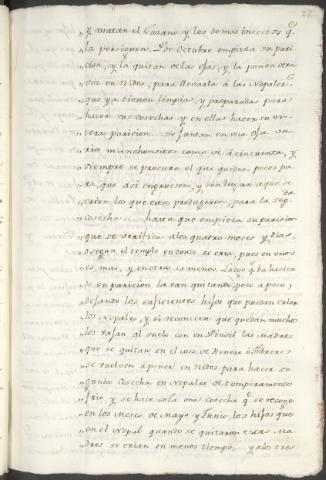 27
„ y matan el Gusano y los demas insectos q.e
„ la persiguen. Por Octubre empieza su pari-
„ cion, y la quitan de las ojas, y la ponen otra
„ vez en Nidos, para llevarla à las Nopales
„ que ya tienen limpias, y preparadas para
„ hacer sus cosechas y en ellas hacen su en-
„ tera paricion. Se juntan en una oja va-
„ rios manchoncitos como de à cincuenta, y
„ siempre se procura el que queden pocos pa-
„ ra que asi engruesen, y den lugar a que se
„ crien los que estos produgeren, para la seg.da
„ cosecha hasta que empieza su paricion
„ que se verifica alos quatro meses y dias,
„ segun el temple endonde se cria, pues en unos
„ es mas, y en otros es menos. Luego q.e ha hecho
„ su paricion la van quitando poco a poco,
„ dejando los suficientes hijos que puedan criar
„ los Nopales, y si reconocen que quedan muchos
„ los bajan al suelo con un Pincel las Madres
„ que se quitan en el mes de Henero ò Febrero
„ se vuelven à poner en Nidos para hacer se-
„ gunda Cosecha en Nopales de temperamento
„ frio y se hace sola una cosecha q.e se recoge
„ en los Meses de Mayo y Junio, los hijos que
„ en el Nopal quando se quitaron estas Ma-
„ dres se crian en menos tiempo, y alos tres